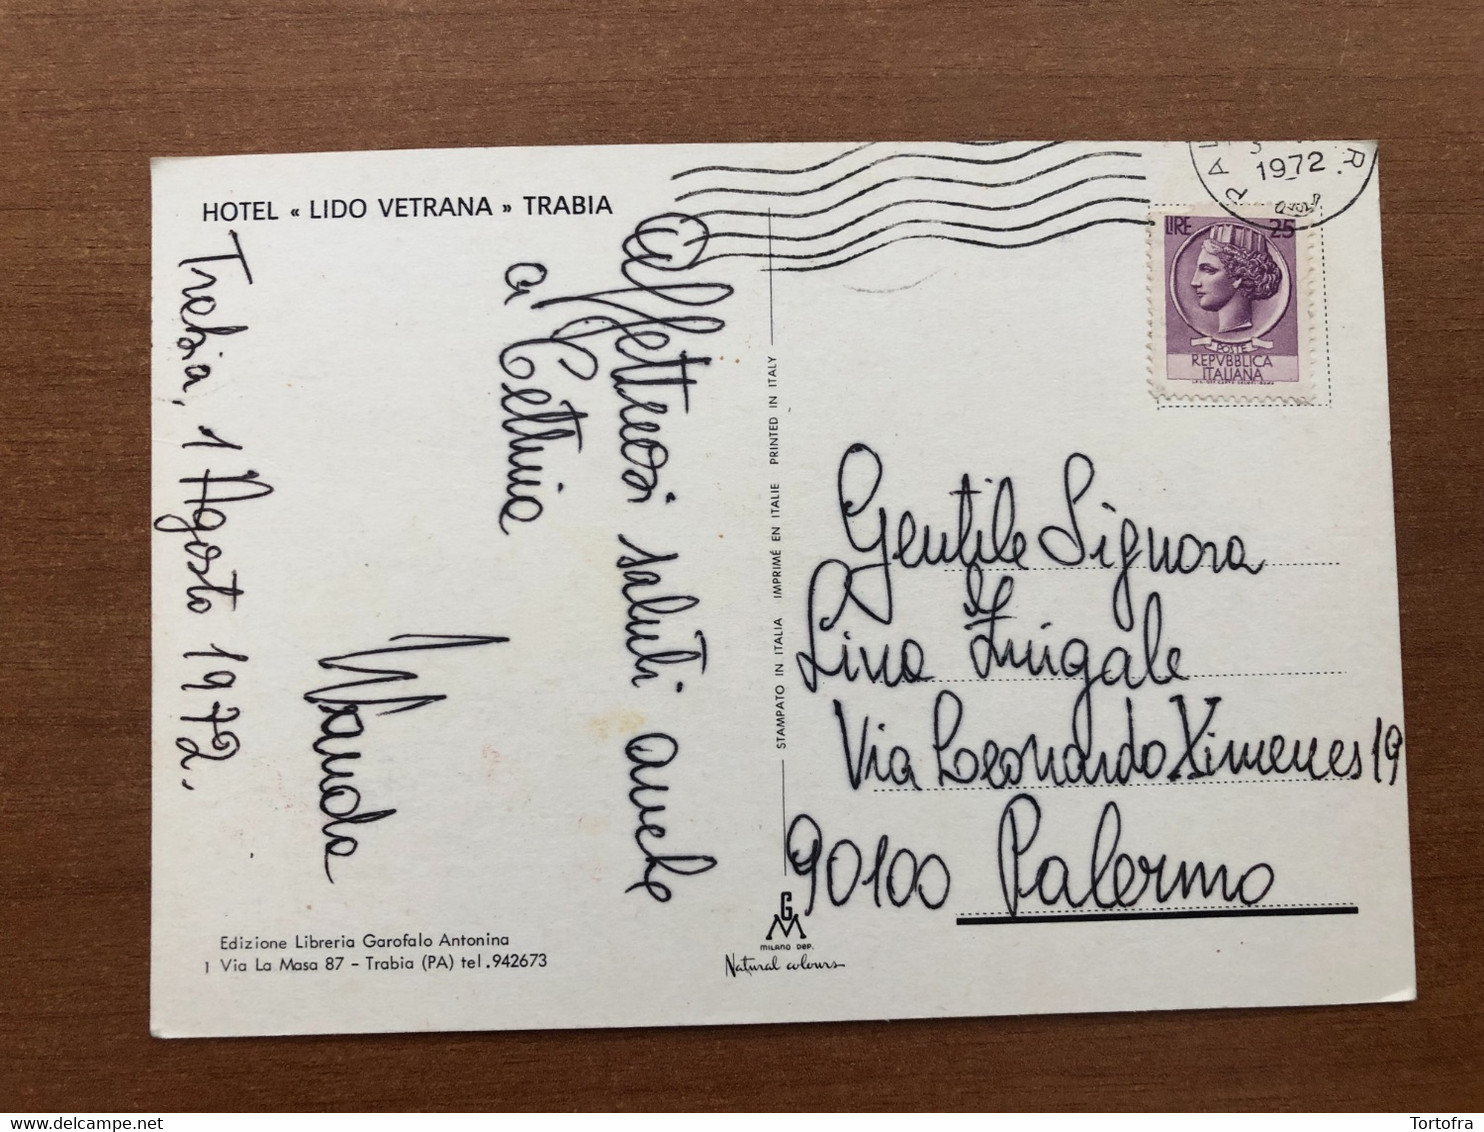 HOTEL « LIDO VETRANA » TRABIA
Trabia, 1 Agosto 1972.
Affettuosi saluti anche
a Cettina
Wanda
STAMPATO IN ITALIA IMPRIMÉ EN ITALIE PRINTED IN ITALY
1972
LIRE 25
POSTE
REPVBBLICA
ITALIANA
Gentile Signora
Lina Zingale
Via Leonardo Ximenes 19
90100 Palermo
Edizione Libreria Garofalo Antonina
1 Via La Masa 87 - Trabia (PA) tel. 942673
GM
MILANO DEP.
Natural colours
Tortofra